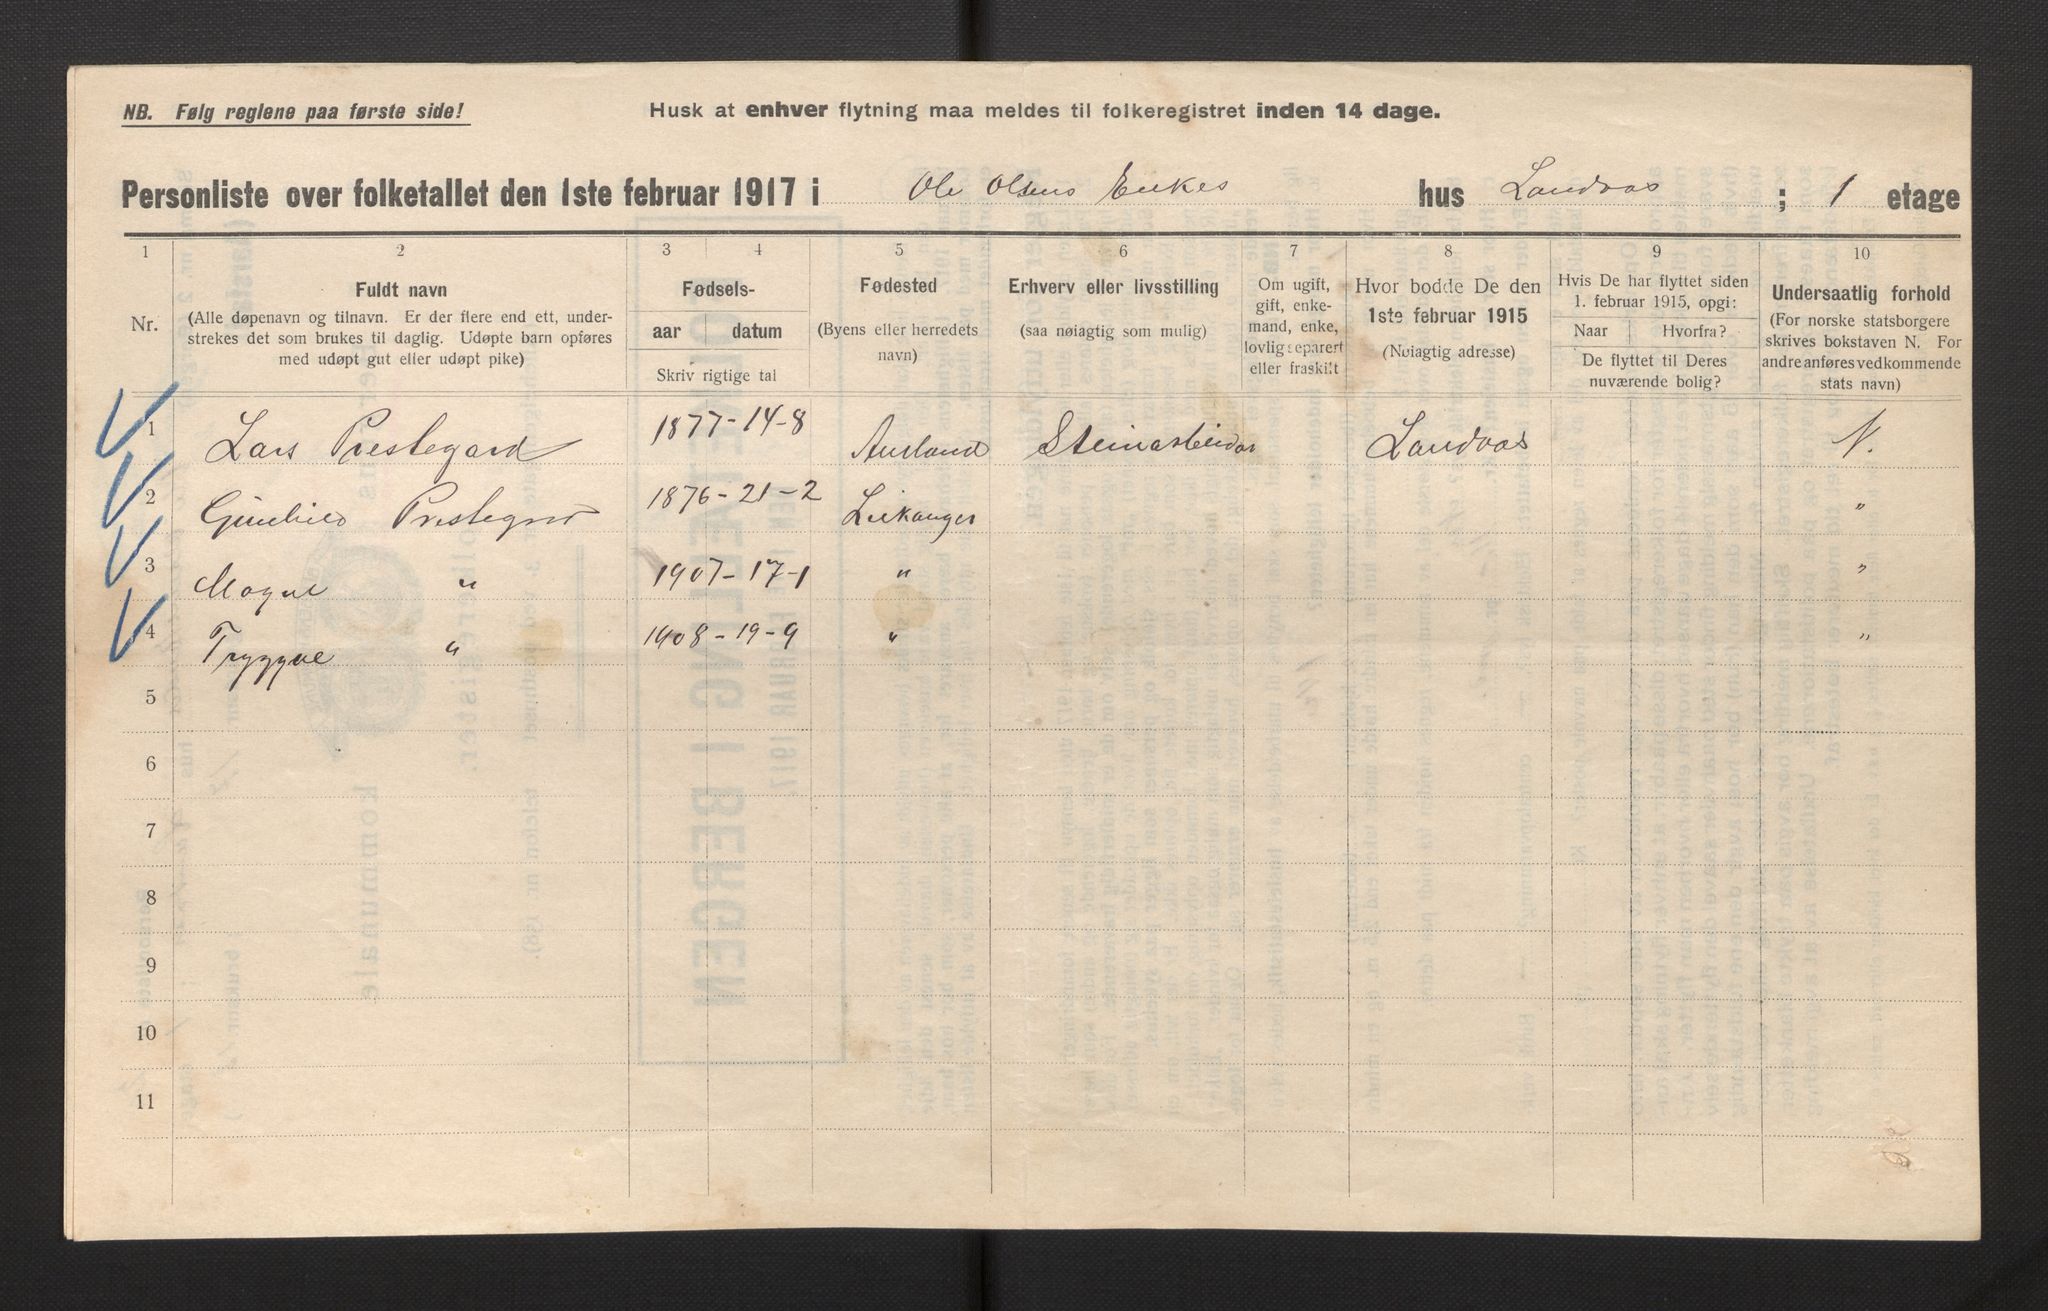 NB. Følg reglene paa første side!
Husk at enhver flytning maa meldes til folkeregistret inden 14 dage.
Personliste over folketallet den 1ste februar 1917 i Ole Olsens Enkes hus Landaas ; 1 etage
1 2 3 4 5 6 7 8 9 10
Nr.
Fuldt navn
(Alle døpenavn og tilnavn. Er der flere end ett, under-
strekes det som brukes til daglig. Udøpte barn opføres
med udøpt gut eller udøpt pike)
Fødsels-
aar datum
Skriv rigtige tal
Fødested
(Byens eller herredets
navn)
Erhverv eller livsstilling
(saa nøiagtig som mulig)
Om ugift,
gift, enke-
mand, enke,
lovlig separert
eller fraskilt
Hvor bodde De den
1ste februar 1915
(Nøiagtig adresse)
Hvis De har flyttet siden
1. februar 1915, opgi:
Naar Hvorfra?
De flyttet til Deres
nuværende bolig?
Undersaatlig forhold
(For norske statsborgere
skrives bokstaven N. For
andre anføres vedkommende
stats navn)
1 Lars Prestegard 1877-14-8 Aurland Steinarbeidar Landaas N.
2 Prestegard 1876-21-2 Leikanger "
3 Magne " 1907-17-1 " "
4 Tryggve " 1908-19-9 " "
5
6
7
8
9
10
11